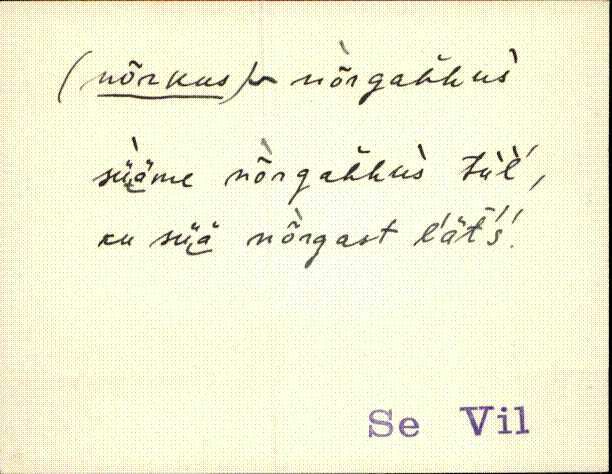 (nõrkus) ~ nò̃rgaħħus̀
sǜä̯me nò̃rgaħħus̀ tül̀',
ku süä̯ nò̃rgast l'ät's'.
Se Vil